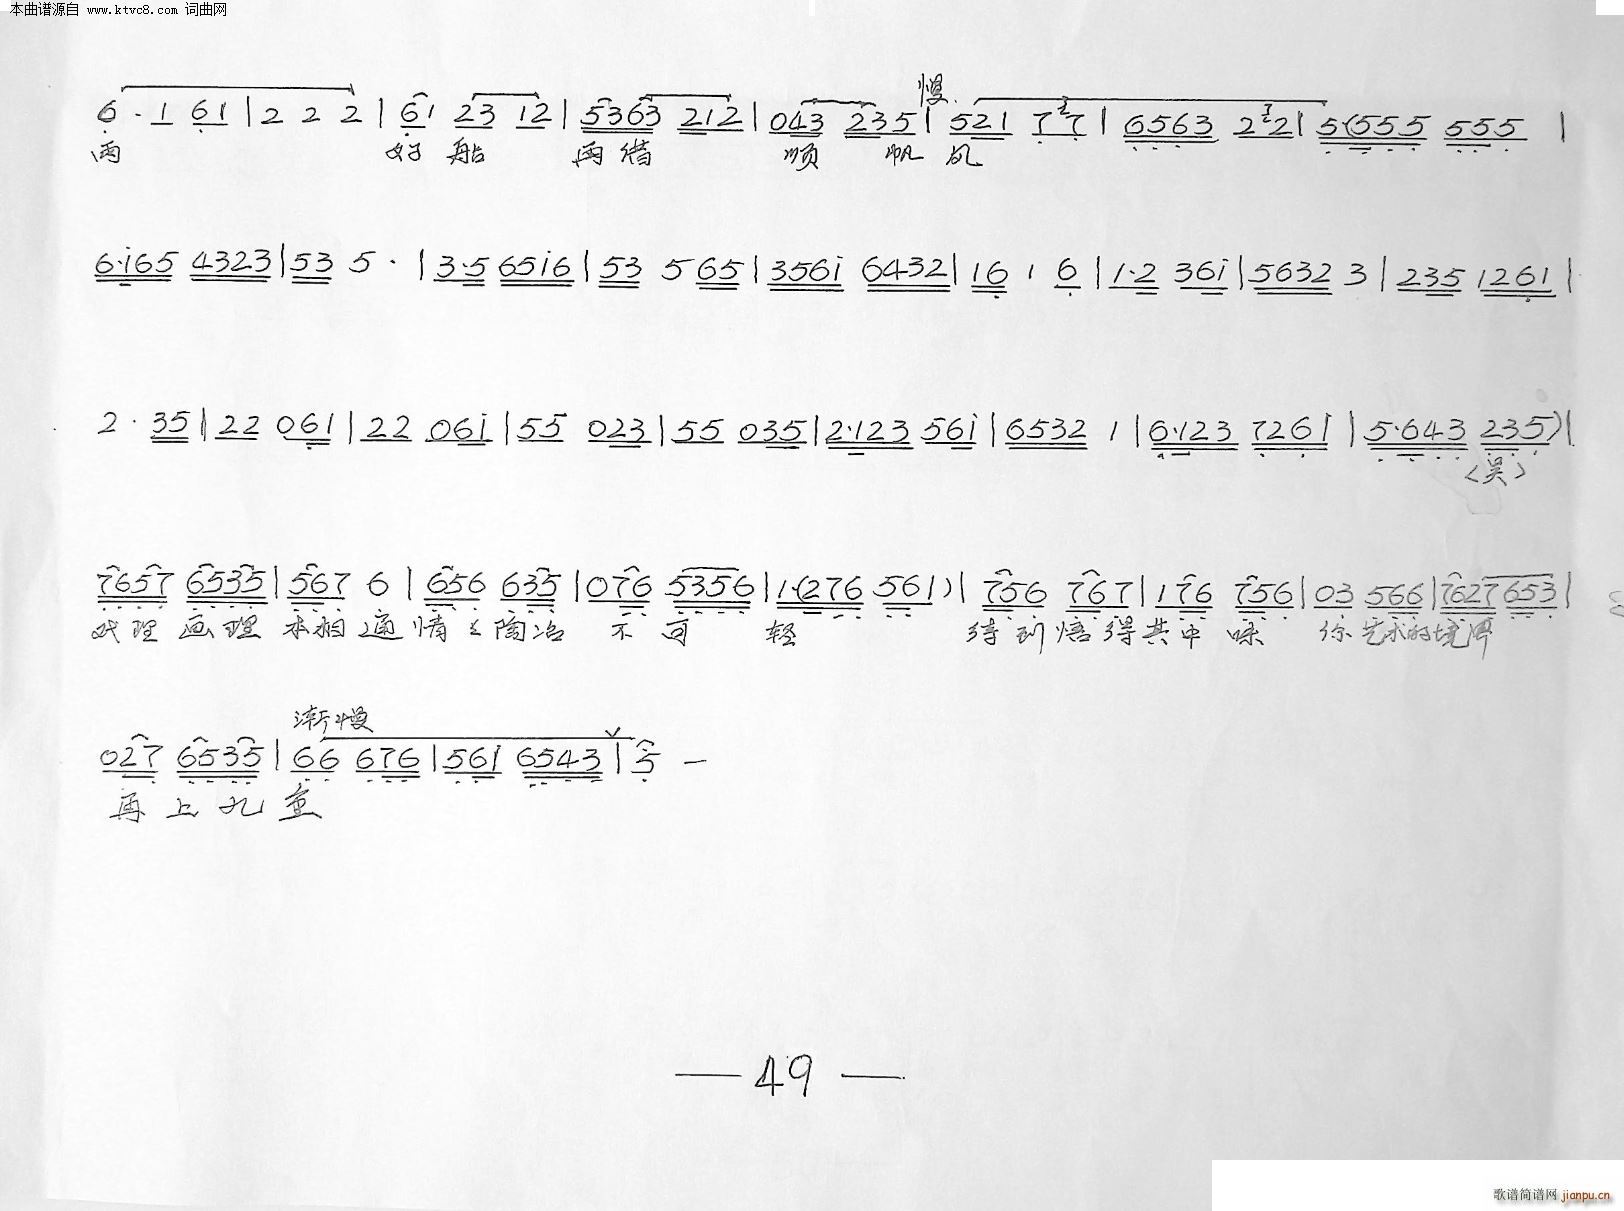 本曲谱源自 www.ktvc8.com 词曲网
慢.
6·1 61 | 2 2 2 | 61 23 12 | 5363 212 | 043 235 | 521 7 7 | 6563 2 2 | 5(555 555 |
雨 好 船 再 借 顺 帆 风
6·i65 4323 | 53 5· | 3·5 65i6 | 53 5 65 | 356i 6432 | 16 1 6 | 1·2 36i | 5632 3 | 235 1261 |
2·35 | 22 061 | 22 06i | 55 023 | 55 035 | 2·123 56i | 6532 1 | 6·123 7261 | 5·643 235) |
<吴>
7657 6535 | 567 6 | 656 635 | 076 5356 | 1·(276 561) | 756 767 | 176 756 | 03 566 | 7627653 |
戏理画理本相通 情 陶冶 不可 轻 待到悟得其中味 你艺术的境界
渐慢
027 6535 | 66 676 | 561 6543 | 5 —
再上九重
— 49 —
歌谱简谱网 jianpu.cn